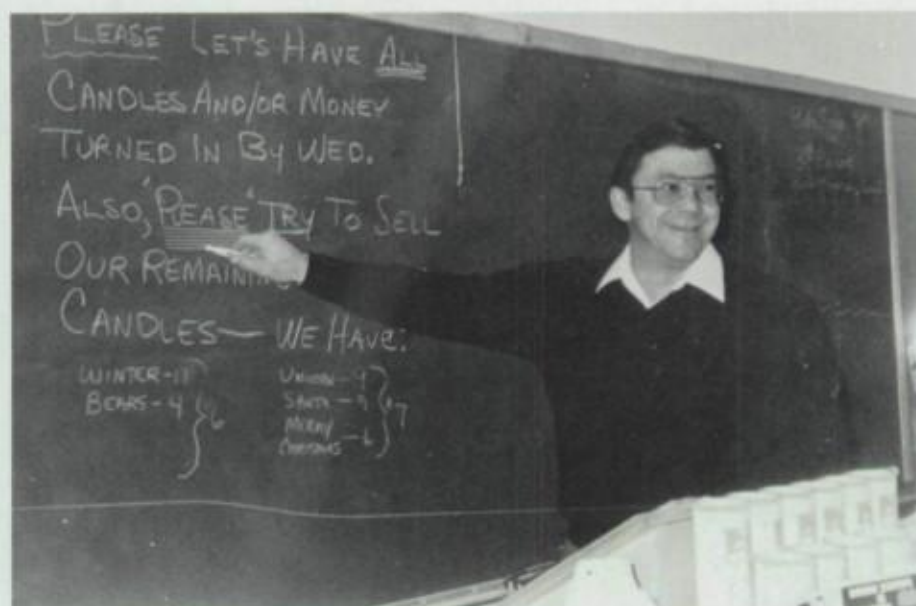 PLEASE LET'S HAVE ALL
CANDLES AND/OR MONEY
TURNED IN BY WED.
ALSO, "PLEASE" TRY TO SELL
OUR REMAINING
CANDLES— WE HAVE:
WINTER-11
BEARS-4
SANTA-9
MERRY
CHRISTMAS-6